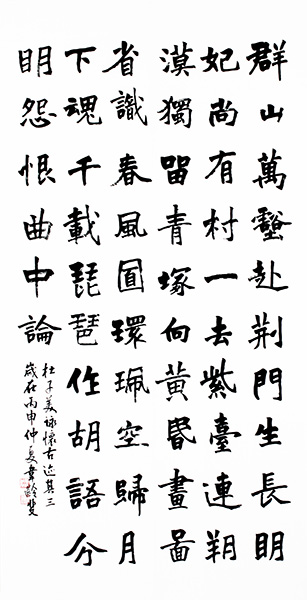 群山萬壑赴荆門生長明
妃尚有村一去紫臺連朔
漠獨留青塚向黄昏畫啚
省識春風面環珮空歸月
下魂千載琵琶作胡語分
明怨恨曲中論
杜子美詠懷古迹其三
歲在丙申仲夏韋